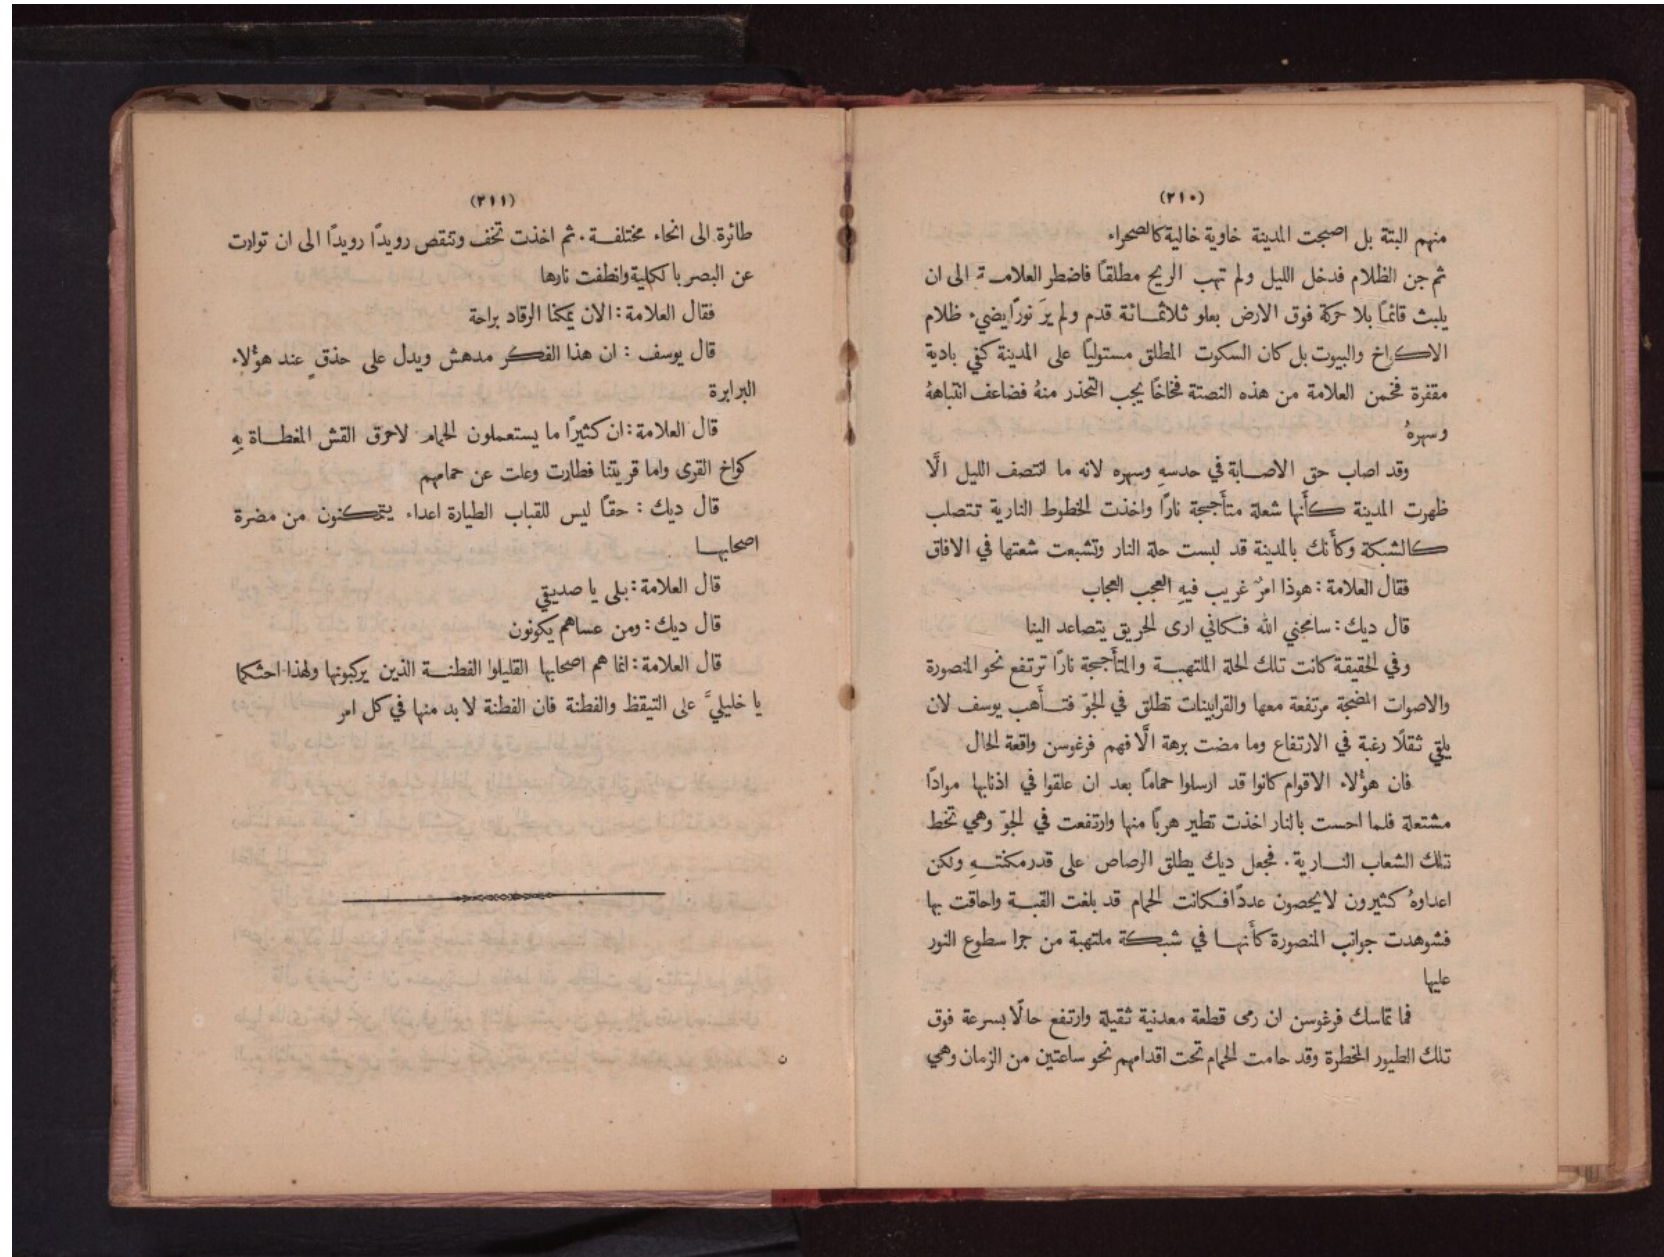 (٢١٠)
منهم البتة بل اصبحت المدينة خاوية خالية كالصحراء
ثم جن الظلام فدخل الليل ولم تهب الريح مطلقًا فاضطر العلامة الى ان
يلبث قائمًا بلا حركة فوق الارض بعلو ثلاثمائة قدم ولم يرَ نورًا يضيء ظلام
الاكواخ والبيوت بل كان السكوت المطلق مستوليًا على المدينة كفي بادية
مقفرة فخمن العلامة من هذه النصتة فخاخًا يجب التحذر منهُ فضاعف انتباههُ
وسهرهُ
وقد اصاب حق الاصابة في حدسهِ وسهره لانه ما انتصف الليل الَّا
ظهرت المدينة كأَنها شعلة متأَججة نارًا واخذت الخطوط النارية تتصلب
كالشبكة وكأَنك بالمدينة قد لبست حلة النار وتشبعت شعتها في الافاق
فقال العلامة : هوذا امرٌ غريب فيهِ العجب العجاب
قال ديك : سامحني الله فكاني ارى الحريق يتصاعد الينا
وفي الحقيقة كانت تلك الحلة الملتهبة والمتأَججة نارًا ترتفع نحو المنصورة
والاصوات المضجة مرتفعة معها والقرابينات تطلق في الجوّ فتأَهب يوسف لان
يلقي ثقلًا رغبة في الارتفاع وما مضت برهة الَّا فهم فرغوسن واقعة الحال
فان هؤلاء الاقوام كانوا قد ارسلوا حمامًا بعد ان علقوا في اذنابها موادًا
مشتعلة فلما احست بالنار اخذت تطير هربًا منها وارتفعت في الجوّ وهي تخط
تلك الشعاب النارية . فجعل ديك يطلق الرصاص على قدر مكنتهِ ولكن
اعداوهُ كثيرون لا يحصون عددًا فكانت الحمام قد بلغت القبة واحاقت بها
فشوهدت جوانب المنصورة كأَنها في شبكة ملتهبة من جرا سطوع النور
عليها
فما تماسك فرغوسن ان رمى قطعة معدنية ثقيلة وارتفع حالًا بسرعة فوق
تلك الطيور الخطرة وقد حامت الحمام تحت اقدامهم نحو ساعتين من الزمان وهي
(٢١١)
طائرة الى انحاء مختلفة . ثم اخذت تخف وتنقص رويدًا رويدًا الى ان توارت
عن البصر بالكلية وانطفت نارها
فقال العلامة : الان يمكنا الرقاد براحة
قال يوسف : ان هذا الفكر مدهش ويدل على حذقٍ عند هؤلاء
البرابرة
قال العلامة : ان كثيرًا ما يستعملون الحمام لاحرق القش المغطاة بهِ
كواخ القرى واما قريتنا فطارت وعلت عن حمامهم
قال ديك : حقًا ليس للقباب الطيارة اعداء يتمكنون من مضرة
اصحابها
قال العلامة : بلى يا صديقي
قال ديك : ومن عساهم يكونون
قال العلامة : انما هم اصحابها القليلوا الفطنة الذين يركبونها ولهذا احثكما
يا خليليَّ على التيقظ والفطنة فان الفطنة لا بد منها في كل امر
ن